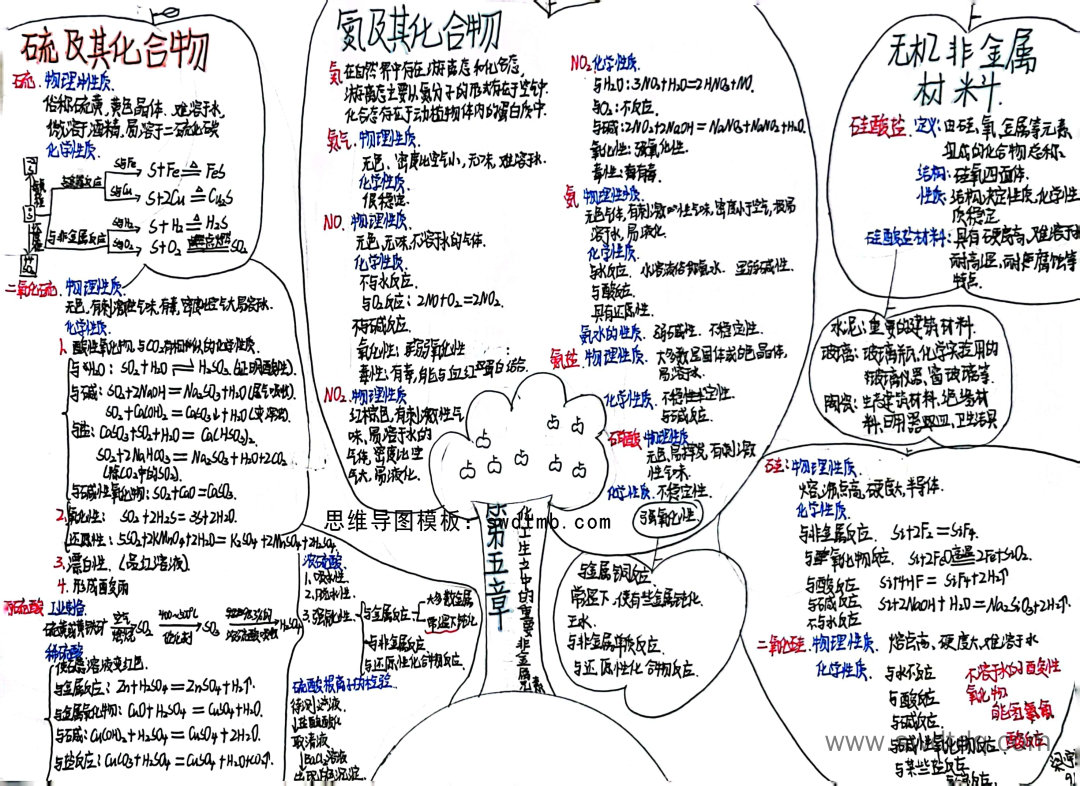 硫及其化合物
硫 物理性质
俗称硫黄,黄色晶体.难溶于水,
微溶于酒精,易溶于二硫化碳
化学性质.
与Fe S+Fe≜FeS
与Cu S+2Cu≜Cu₂S
与非金属反应
与H₂ S+H₂≜H₂S
与O₂ S+O₂ 点燃 SO₂
二氧化硫.物理性质.
无色,有刺激性气味,有毒,密度比空气大易溶水.
化学性质.
1.酸性氧化物,与CO₂有相似的化学性质.
与H₂O: SO₂+H₂O⇌H₂SO₃(证明酸性)
与碱: SO₂+2NaOH=Na₂SO₃+H₂O(尾气吸收)
SO₂+Ca(OH)₂=CaSO₃↓+H₂O(变浑浊)
与盐: CaSO₃+SO₂+H₂O=Ca(HSO₃)₂.
SO₂+2NaHCO₃=Na₂SO₃+H₂O+2CO₂
(除CO₂中的SO₂)
与碱性氧化物: SO₂+CaO=CaSO₃.
2.氧化性: SO₂+2H₂S=3S+2H₂O.
还原性: 5SO₂+2KMnO₄+2H₂O=K₂SO₄+2MnSO₄+2H₂SO₄
3.漂白性.(品红溶液)
4.形成酸雨
硫酸 工业制备
硫黄或黄铁矿 空气 燃烧 SO₂ 400~500℃ 催化剂 SO₃ H₂SO₄
稀硫酸
使石蕊溶液变红色.
与金属反应: Zn+H₂SO₄=ZnSO₄+H₂↑
与金属氧化物: CuO+H₂SO₄=CuSO₄+H₂O.
与碱: Cu(OH)₂+H₂SO₄=CuSO₄+2H₂O.
与盐反应: CuCO₃+H₂SO₄=CuSO₄+H₂O+CO₂↑
浓硫酸
1.吸水性.
2.脱水性.
3.强氧化性
与金属反应
大多数金属
常温下钝化
与非金属反应
与还原性化合物反应.
硫酸根离子的检验.
待测溶液
↓盐酸酸化
取清液
↓BaCl₂溶液
出现白色沉淀.
氮及其化合物
氮 在自然界中存在游离态和化合态,
游离态主要以氮分子的形式存在于空气中.
化合态存在于动植物体内的蛋白质中.
氮气 物理性质.
无色、密度比空气小,无味,难溶于水.
化学性质.
很稳定.
NO.物理性质.
无色,无味,不溶于水的气体.
化学性质.
不与水反应.
与O₂反应: 2NO+O₂=2NO₂.
不与碱反应.
毒性:有毒,能与血红蛋白结合.
NO₂.物理性质
红棕色,有刺激性气
味,易溶于水的
气体,密度比空
气大,易液化.
NO₂化学性质.
与H₂O: 3NO₂+H₂O=2HNO₃+NO.
与O₂:不反应.
与碱: 2NO₂+2NaOH=NaNO₃+NaNO₂+H₂O.
氧化性:强氧化性.
毒性:有毒.
氨 物理性质.
无色气体,有刺激性气味,密度小于空气,极易
溶于水,易液化.
化学性质.
与水反应. 水溶液俗称氨水. 呈弱碱性.
与酸反应.
具有还原性.
氨水的性质. 弱碱性. 不稳定性.
氨盐 物理性质. 大多数呈固体或白色晶体,
易溶水.
化学性质. 不稳性
与碱反应.
硝酸 物理性质
无色,易挥发,有刺激
性气味
化学性质.不稳定性.
强氧化性.
与金属铜反应.
常温下,使有些金属钝化.
王水.
与非金属单质反应.
与还原性化合物反应.
思维导图模板:swdtmb.com
第五章
化工生产中的重要非金属元素
无机非金属
材料.
硅酸盐 定义:由硅,氧,金属等元素
组成的化合物总称.
结构:硅氧四面体.
性质:结构决定性质,化学性
质稳定
硅酸盐材料:具有硬度高,难溶于水
耐高温,耐腐蚀等
特点.
水泥:重要的建筑材料.
玻璃:玻璃瓶,化学实验用的
玻璃仪器,窗玻璃等.
陶瓷:生产建筑材料,绝缘材
料,日用器皿,卫生洁具
硅:物理性质.
熔、沸点高,硬度大,半导体.
化学性质.
与非金属反应. Si+2F₂=SiF₄.
与氧化物反应. Si+2FeO 高温 2Fe+SiO₂.
与酸反应 Si+4HF=SiF₄+2H₂↑
与碱反应 Si+2NaOH+H₂O=Na₂SiO₃+2H₂↑
不与水反应
二氧化硅.物理性质. 熔点高、硬度大,难溶于水
化学性质.
与水反应
与酸反应
与碱反应.
与碱性氧化物反应.
与某些盐反应
不溶于水的酸性
氧化物
能与氢氟
酸反应